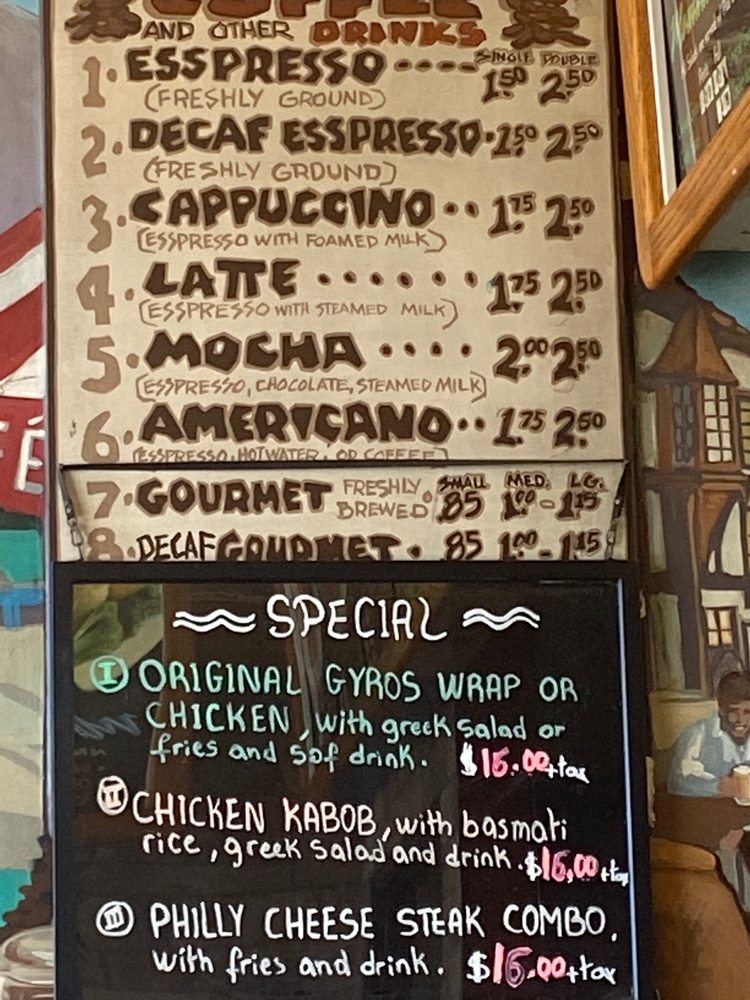 COFFEE
AND OTHER DRINKS
SINGLE DOUBLE
1. ESSPRESSO ---- 1.50 2.50
(FRESHLY GROUND)
2. DECAF ESSPRESSO. 1.50 2.50
(FRESHLY GROUND)
3. CAPPUCCINO .. 1.75 2.50
(ESSPRESSO WITH FOAMED MILK)
4. LATTE ...... 1.75 2.50
(ESSPRESSO WITH STEAMED MILK)
5. MOCHA .... 2.00 2.50
(ESSPRESSO, CHOCOLATE, STEAMED MILK)
6. AMERICANO .. 1.75 2.50
(ESSPRESSO, HOT WATER, OR COFFEE)
SMALL MED. LG.
7. GOURMET FRESHLY BREWED 85 1.00 - 1.15
8. DECAF GOURMET . 85 1.00 - 1.15
SPECIAL
I ORIGINAL GYROS WRAP OR
CHICKEN, with greek salad or
fries and sof drink. $15.00+tax
II CHICKEN KABOB, with basmati
rice, greek salad and drink. $16.00+tax
III PHILLY CHEESE STEAK COMBO.
with fries and drink. $15.00+tax
FÉ